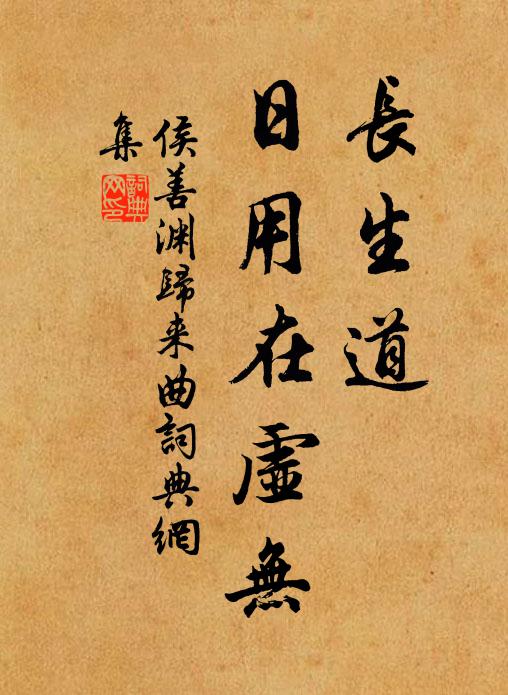 長生道
日用在虛無
侯善渊歸来曲詞典網
集
詞典
网印